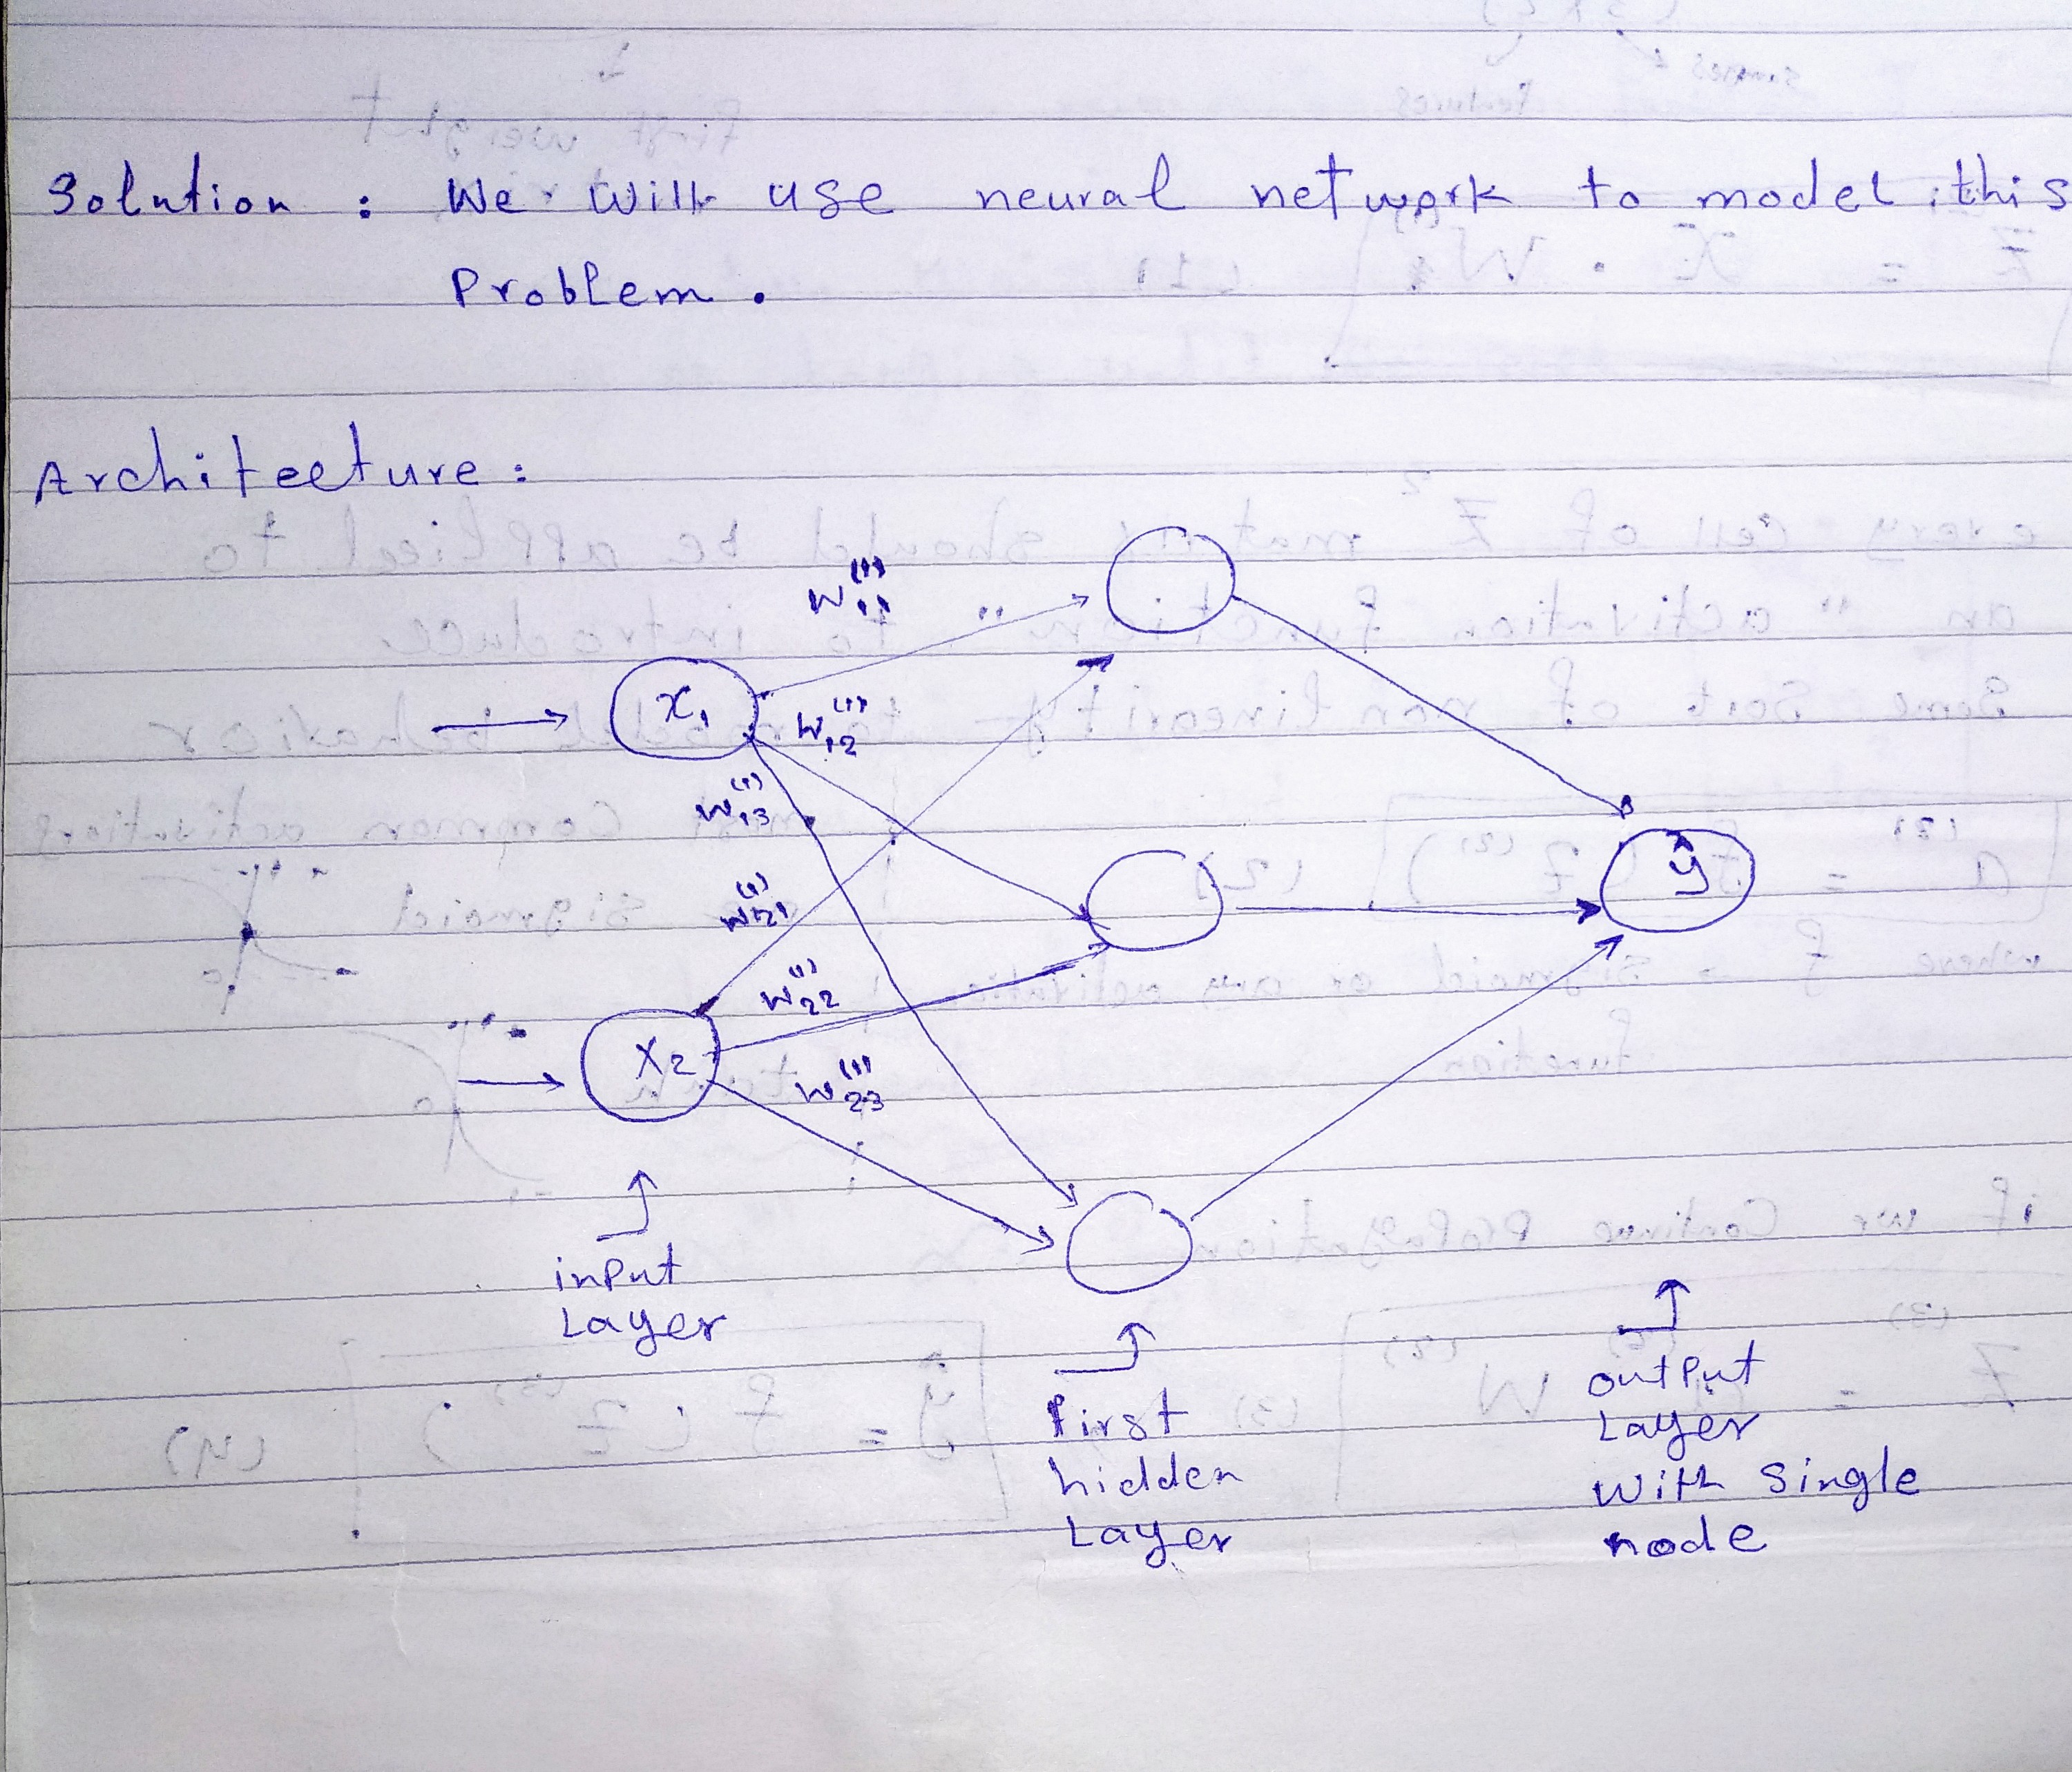 Solution : We will use neural network to model this
Problem.
Architecture:
W₁₁⁽¹⁾
x₁
W₁₂⁽¹⁾
W₁₃⁽¹⁾
ŷ
W₂₁⁽¹⁾
W₂₂⁽¹⁾
X₂
W₂₃⁽¹⁾
input
Layer
first
hidden
Layer
output
Layer
with single
node